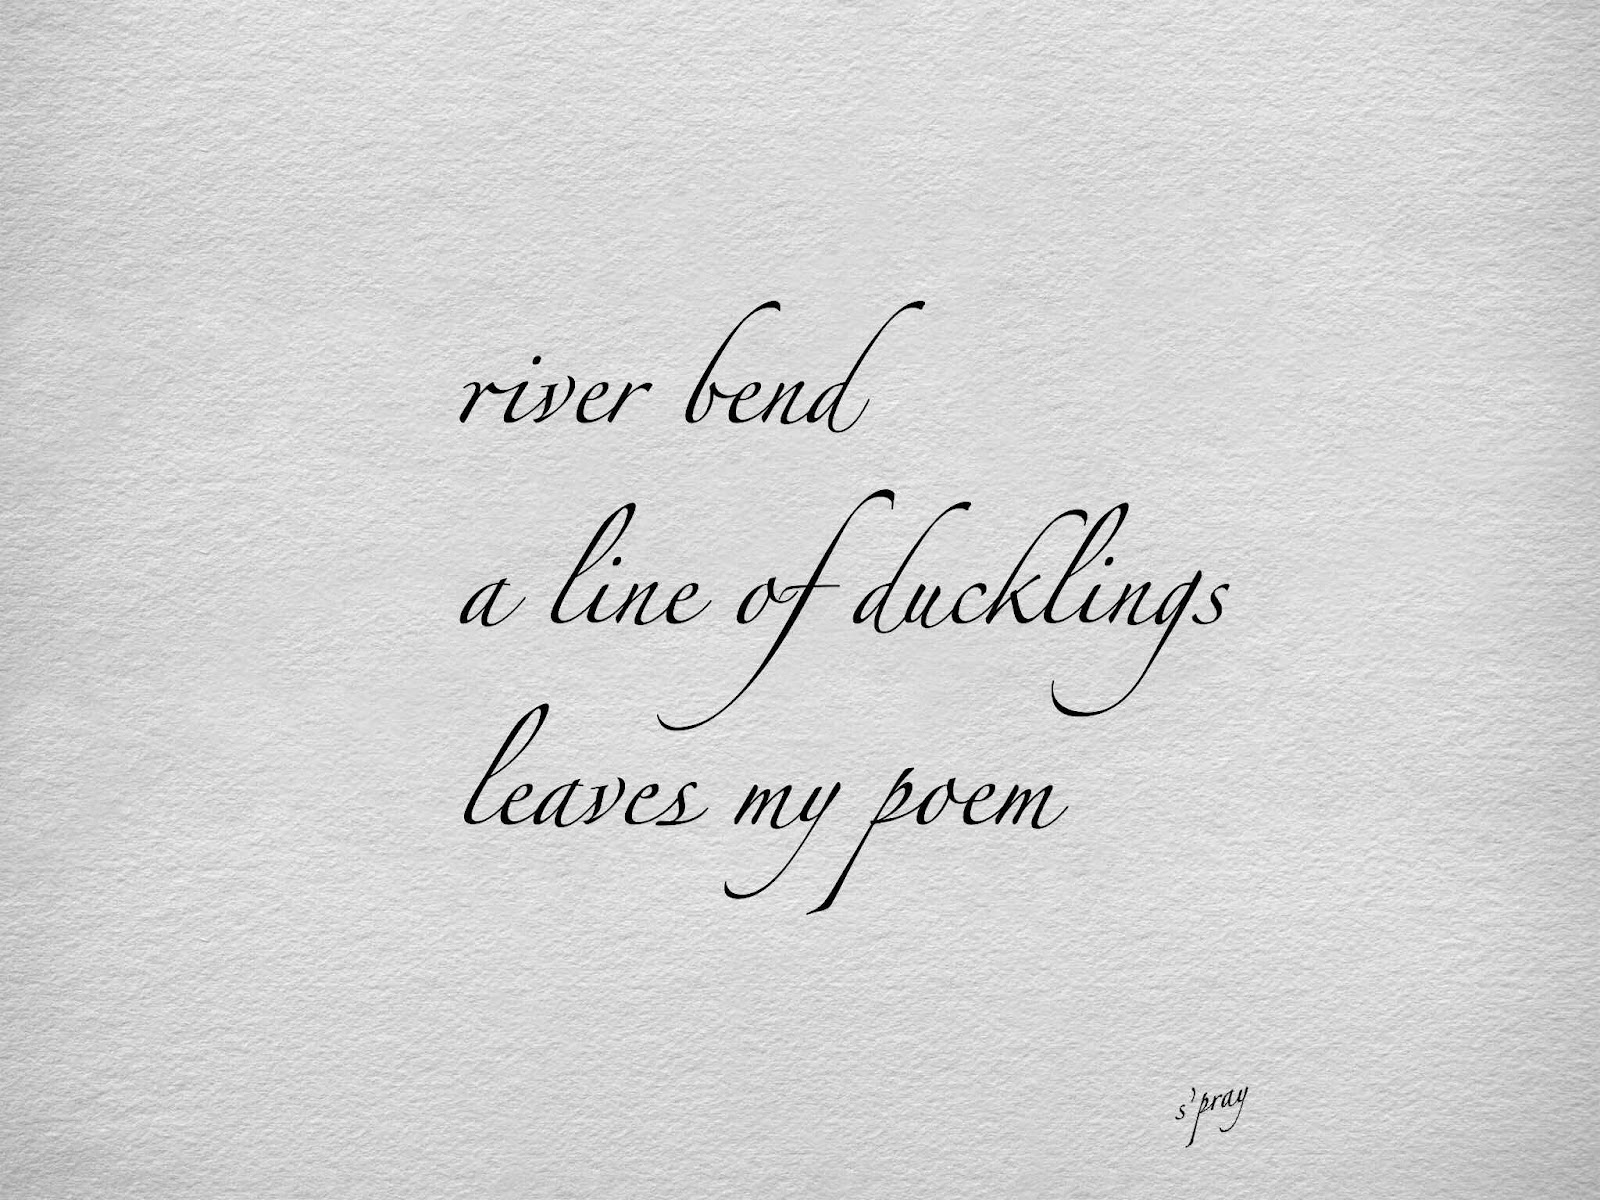 river bend
a line of ducklings
leaves my poem
s'pray